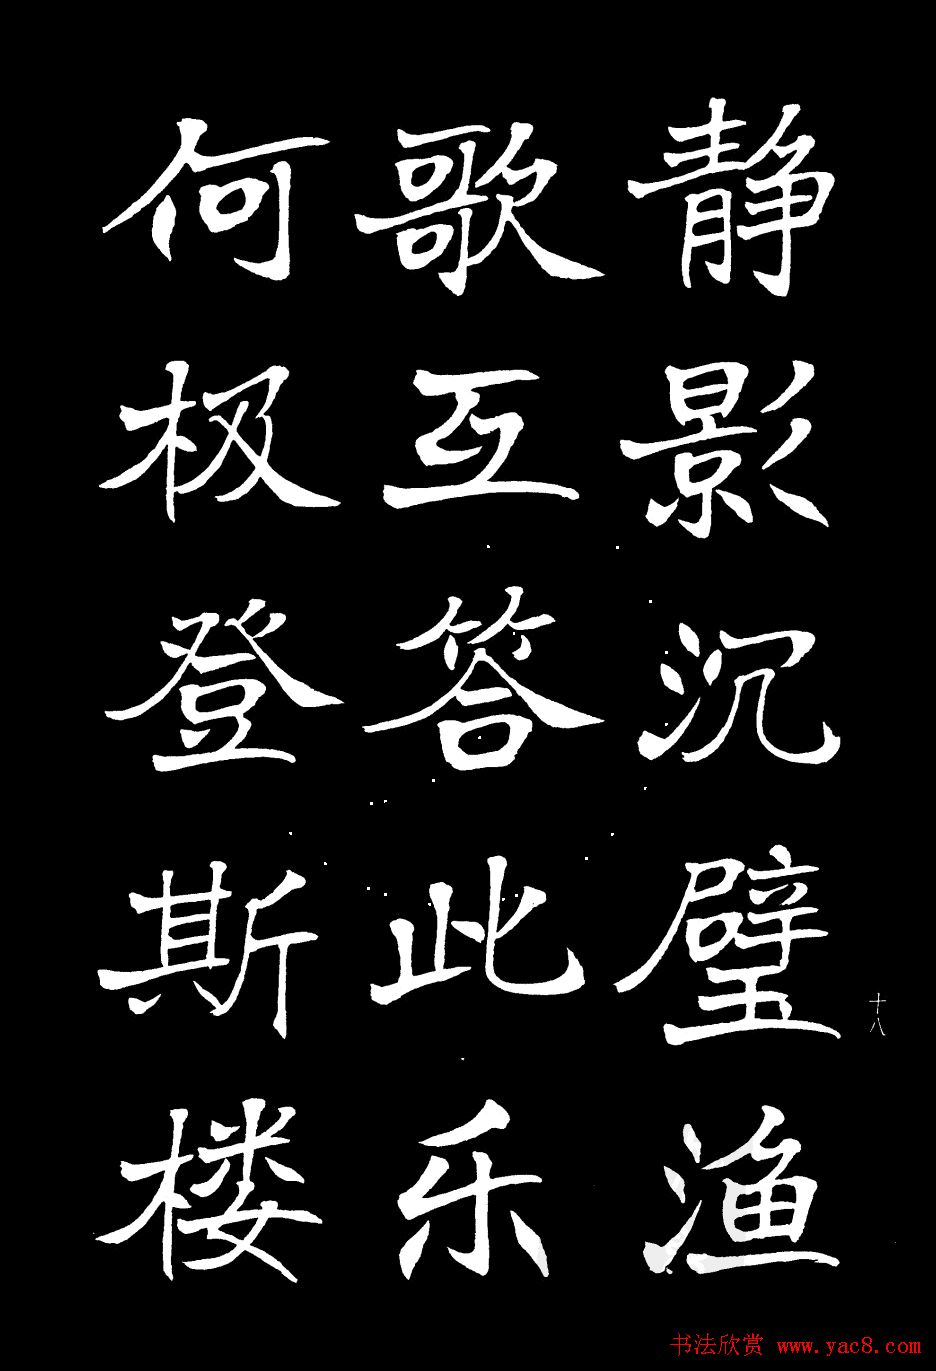 静影沉璧渔
歌互答此乐
何极登斯楼
十八
书法欣赏 www.yac8.com